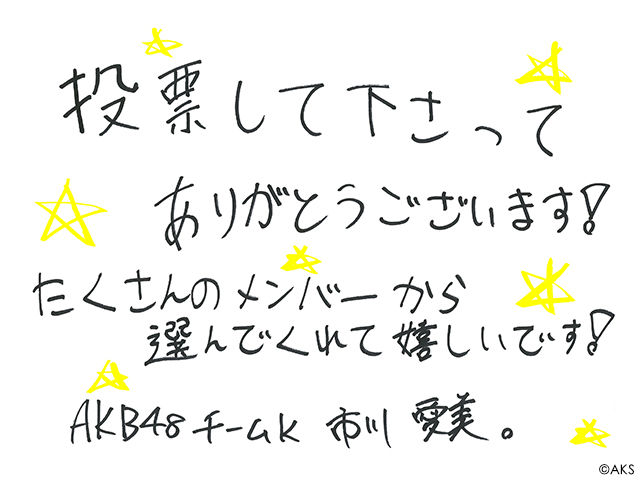 投票して下さって
ありがとうございます!
たくさんのメンバーから
選んでくれて嬉しいです!
AKB48 チームK 市川 愛美。
©AKS